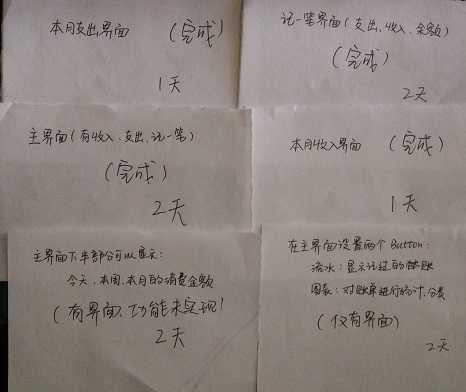 本月支出界面 (完成)
1天
记一笔界面(支出、收入、余额)
(完成)
2天
主界面(有收入、支出、记一笔)
(完成)
2天
本月收入界面 (完成)
1天
主界面下半部分可以显示:
今天、本周、本月的消费金额
(有界面、功能未实现)
2天
在主界面设置两个Button:
流水:显示记过的账
图表:对账单进行统计、分类
(仅有界面)
2天